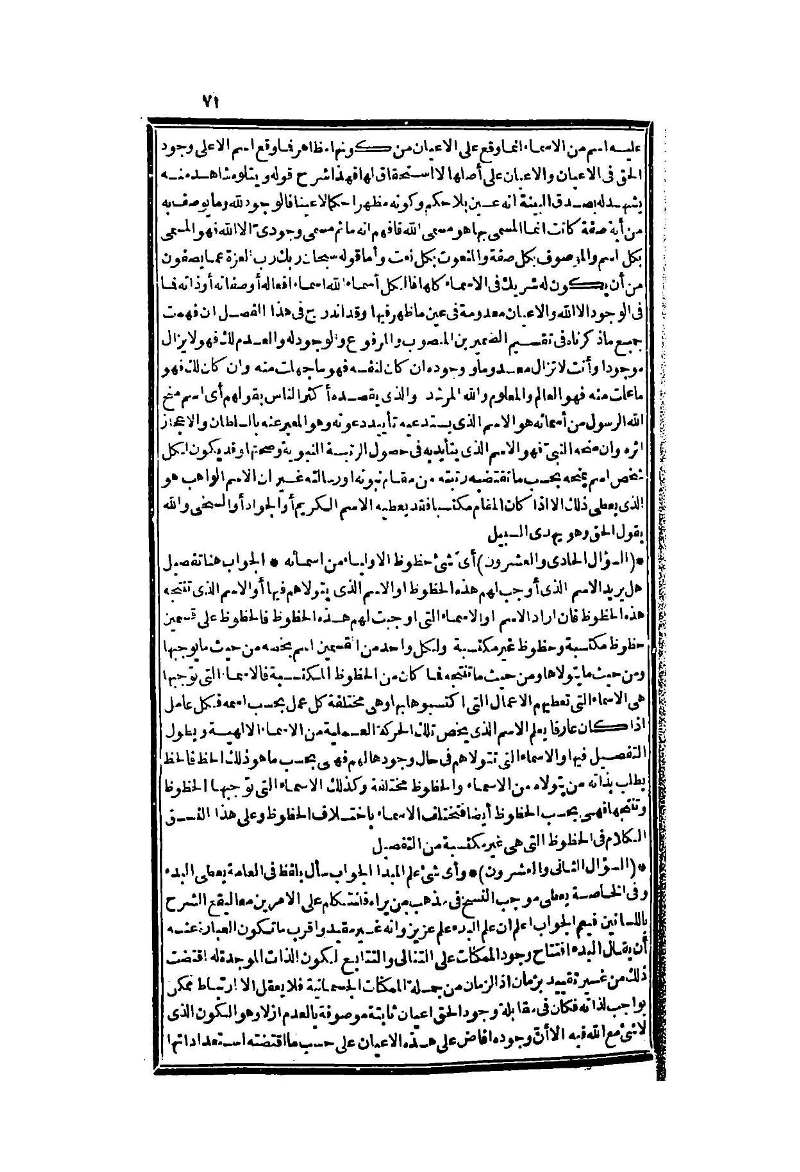 ٧١
عليه اسم من الاسماء انما وقع على الاعيان من كونها مظاهر فما وقع اسم الا على وجود
الحق فى الاعيان والاعيان على أصلها لا استحقاق لها فهذا شرح قوله ويتلوه شاهد منه
يشهد له بصدق البينة انه عين بلا حكم وكونه مظهرا حكم لا عينا فالوجود لله وما يوصف به
من أية صفة كانت انما المسمى بها هو مسمى الله فافهم انه ماثم مسمى وجودىّ الا الله فهو المسمى
بكل اسم والموصوف بكل صفة والمنعوت بكل نعت وأما قوله سبحان ربك رب العزة عما يصفون
من أن يكون له شريك فى الاسماء كلها فالكل أسماء الله اسماء افعاله أو صفاته أو ذاته فما
فى الوجود الا الله والاعيان معدومة فى عين ما ظهر فيها وقد اندرج فى هذا الفصل ان فهمت
جميع ما ذكرناه فى تقسيم الضميرين المنصوب والمرفوع والوجود له والعدم لك فهو لا يزال
موجودا وأنت لا تزال معدوما ووجوده ان كان لنفسه فهو ما جهلت منه وان كان لك فهو
ما علمت منه فهو العالم والمعلوم والله المرشد والذى يقصده أكثر الناس بقولهم أى اسم منح
الله الرسول من أسمائه هو الاسم الذى يستدعيه تأييد دعوته وهو المعبر عنه بالسلطان والاعجاز
اثره وان منحه النبىّ فهو الاسم الذى يتأيد به فى حصول الرتبة النبوية وصحتها وقد يكون لكل
شخص اسم يمنحه بحسب ما تقتضيه رتبته من مقام نبوته او رسالته غير ان الاسم الواهب هو
الذى يعطى ذلك الا اذا كان المقام مكتسبا فقد يعطيه الاسم الكريم أو الجواد أو السخى والله
يقول الحق وهو يهدى السبيل
*(السؤال الحادى والعشرون) أىّ شئ حظوظ الاولياء من اسمائه * الجواب هنا تفصيل
هل يريد الاسم الذى أوجب لهم هذه الحظوظ او الاسم الذى يتولاهم فيها أو الاسم الذى تنتجه
هذه الحظوظ فان اراد الاسم او الاسماء التى اوجبت لهم هذه الحظوظ فالحظوظ على قسمين
حظوظ مكتسبة وحظوظ غير مكتسبة ولكل واحد من القسمين اسم يخصه من حيث ما يوجبها
ومن حيث ما يتولاها ومن حيث ما تنتجه فما كان من الحظوظ المكتسبة فالاسماء التى توجبها
هى الاسماء التى تعطيهم الاعمال التى اكتسبوها بها وهى مختلفة كل عمل بحسب اسمه فكل عامل
اذا كان عارفا يعلم الاسم الذى يخص تلك الحركة العملية من الاسماء الالهية ويطول
التفصيل فيها والاسماء التى تتولاهم فى حال وجودها لهم فهى بحسب ما هو ذلك الحظ فالحظ
يطلب بذاته من يتولاه من الاسماء والحظوظ مختلفة وكذلك الاسماء التى توجبها الحظوظ
وتنتجها فهى بحسب الحظوظ أيضا فتختلف الاسماء باختلاف الحظوظ وعلى هذا النسق
الكلام فى الحظوظ التى هى غير مكتسبة من التفصيل
*(السؤال الثانى والعشرون)* وأى شئ علم المبدا الجواب سأل بلفظ فى العامة يعطى البدء
وفى الخاصة يعطى موجب النسخ فى مذهب من يراه فلنتكلم على الامرين معا ليقع الشرح
باللسانين فيعم الجواب اعلم ان علم البدء علم عزيز وانه غير مقيد واقرب ما تكون العبارة عنه
أن يقال البدء افتتاح وجود الممكنات على التتالى والتتابع لكون الذات الموجدة له اقتضت
ذلك من غير تقييد بزمان اذ الزمان من جملة الممكنات الجسمانية فلا يعقل الا ارتباط ممكن
بواجب لذاته فكان فى مقابلة وجود الحق اعيان ثابتة موصوفة بالعدم ازلا وهو الكون الذى
لا شئ مع الله فيه الا أن وجوده افاض على هذه الاعيان على حسب ما اقتضته استعداداتها